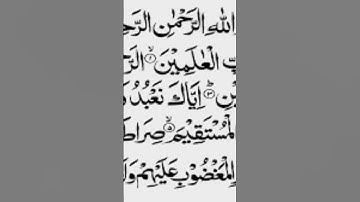 اللهِ الرَّحْمٰنِ الرَّحِ
بِّ الْعٰلَمِيْنَ ۙ﴿۱﴾ الرَّحْ
يْنِ ؕ﴿۳﴾ اِيَّاكَ نَعْبُدُ وَ
لْمُسْتَقِيْمَ ۙ﴿۵﴾ صِرَاطَ
الْمَغْضُوْبِ عَلَيْهِمْ وَلَ